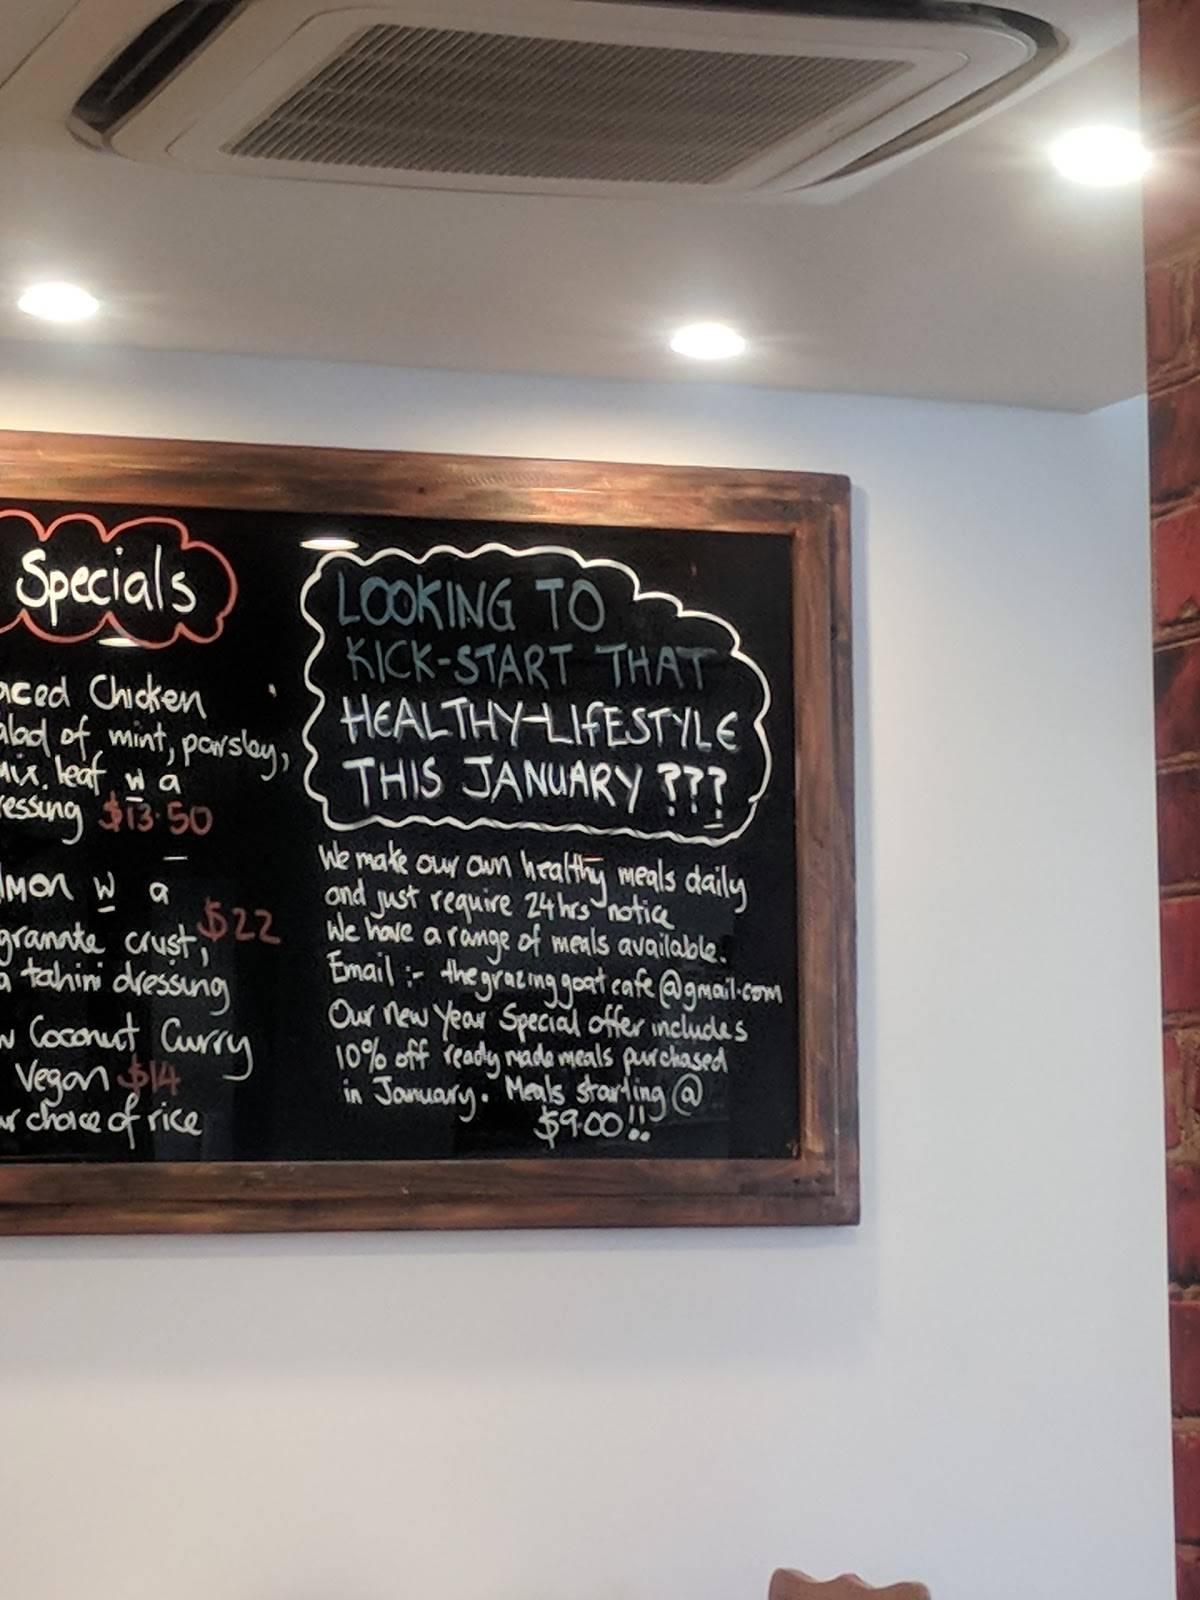 Specials
Chicken
of mint, parsley,
leaf w a
$13.50
w a
$22
crust,
tahini dressing
Coconut Curry
Vegan $14
choice of rice
LOOKING TO
KICK-START THAT
HEALTHY-LIFESTYLE
THIS JANUARY ???
We make our own healthy meals daily
and just require 24hrs notice
We have a range of meals available.
Email :- thegrazinggoatcafe@gmail.com
Our new Year Special offer includes
10% off ready made meals purchased
in January. Meals starting @
$9.00!!